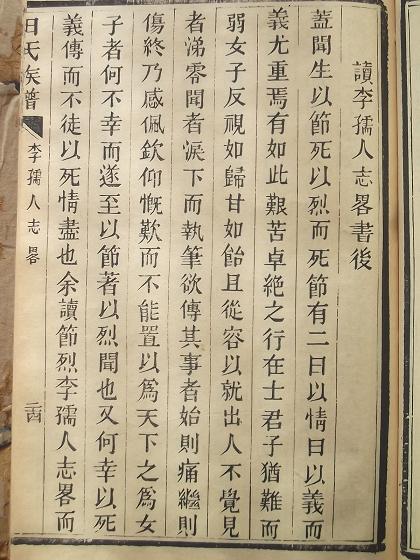 讀李孺人志畧書後
蓋聞生以節死以烈而死節有二曰以情曰以義而
義尤重焉有如此艱苦卓絶之行在士君子猶難而
弱女子反視如歸甘如飴且從容以就出人不覺見
者涕零聞者淚下而執筆欲傳其事者始則痛繼則
傷終乃感佩欽仰慨歎而不能置以爲天下之爲女
子者何不幸而遂至以節著以烈聞也又何幸以死
義傳而不徒以死情盡也余讀節烈李孺人志畧而
氏族譜
李孺人志畧
二十四